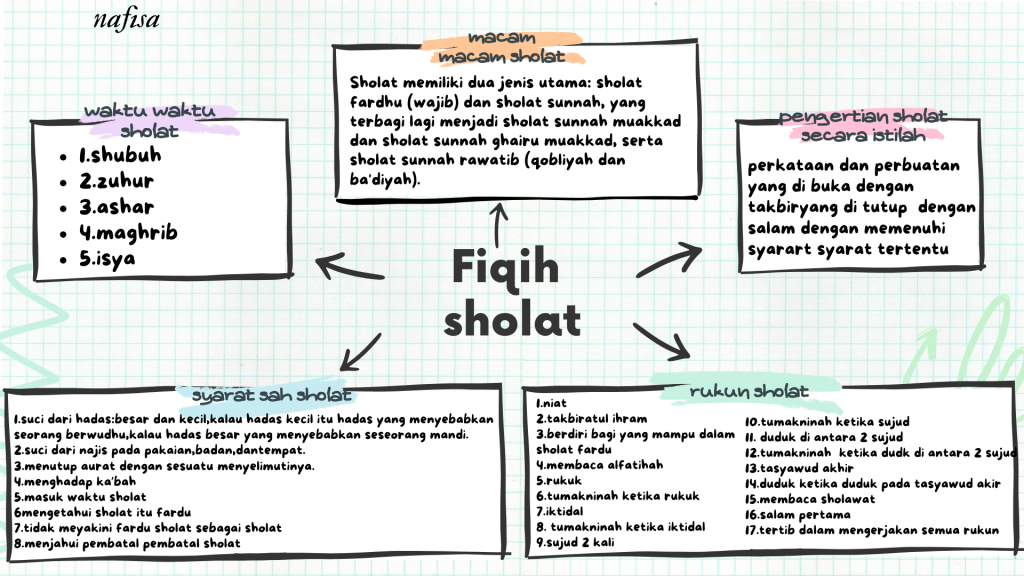 nafisa
macam
macam sholat
Sholat memiliki dua jenis utama: sholat
fardhu (wajib) dan sholat sunnah, yang
terbagi lagi menjadi sholat sunnah muakkad
dan sholat sunnah ghairu muakkad, serta
sholat sunnah rawatib (qobliyah dan
ba'diyah).
waktu waktu
sholat
• 1.shubuh
• 2.zuhur
• 3.ashar
• 4.maghrib
• 5.isya
pengertian sholat
secara istilah
perkataan dan perbuatan
yang di buka dengan
takbiryang di tutup dengan
salam dengan memenuhi
syarart syarat tertentu
Fiqih
sholat
syarat sah sholat
1.suci dari hadas:besar dan kecil,kalau hadas kecil itu hadas yang menyebabkan
seorang berwudhu,kalau hadas besar yang menyebabkan seseorang mandi.
2.suci dari najis pada pakaian,badan,dantempat.
3.menutup aurat dengan sesuatu menyelimutinya.
4.menghadap ka'bah
5.masuk waktu sholat
6mengetahui sholat itu fardu
7.tidak meyakini fardu sholat sebagai sholat
8.menjahui pembatal pembatal sholat
rukun sholat
1.niat
2.takbiratul ihram
3.berdiri bagi yang mampu dalam
sholat fardu
4.membaca alfatihah
5.rukuk
6.tumakninah ketika rukuk
7.iktidal
8. tumakninah ketika iktidal
9.sujud 2 kali
10.tumakninah ketika sujud
11. duduk di antara 2 sujud
12.tumakninah ketika dudk di antara 2 sujud
13.tasyawud akhir
14.duduk ketika duduk pada tasyawud akir
15.membaca sholawat
16.salam pertama
17.tertib dalam mengerjakan semua rukun